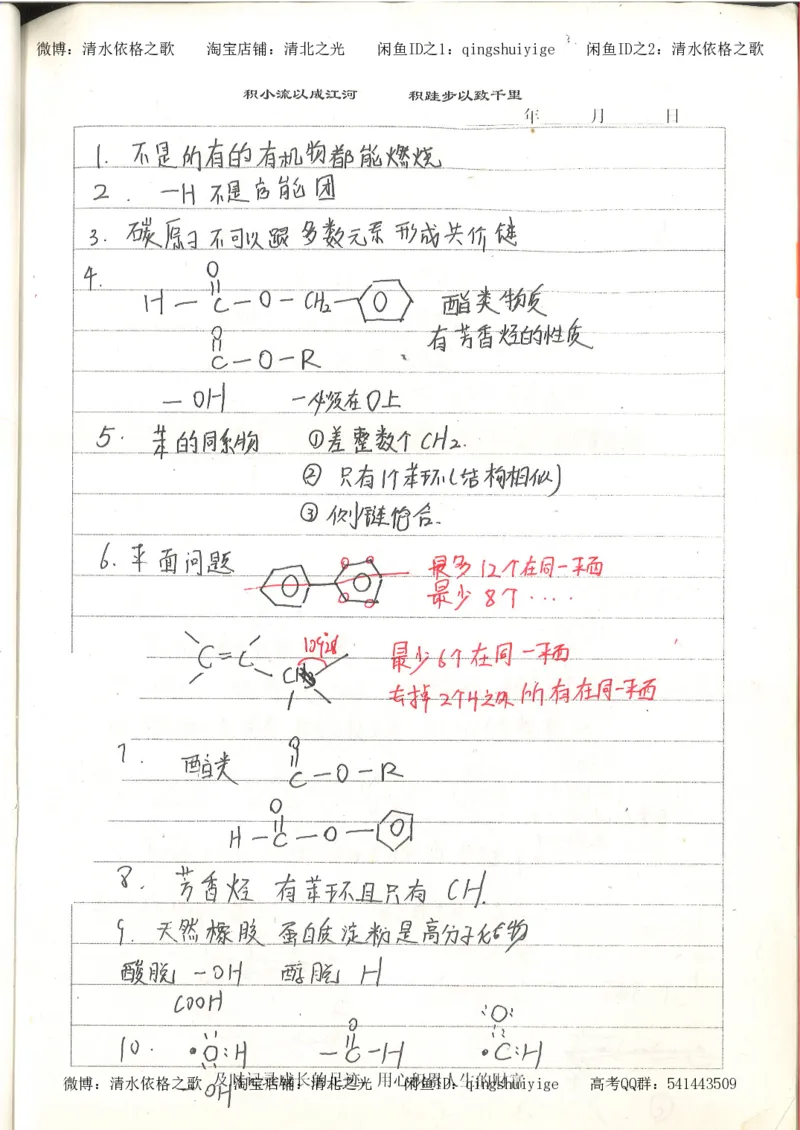 微博：清水依格之歌 淘宝店铺：清北之光 闲鱼ID之1：qingshuiyige 闲鱼ID之2：清水依格之歌
积小流以成江河 积跬步以致千里
年 月 日
1. 不是所有的有机物都能燃烧
2. —H 不是官能团
3. 碳原子不可以跟多数元素形成共价键
4.
O
H—C—O—CH2— 酯类物质
有芳香烃的性质
O
C—O—R
—OH 一必须在O上
5. 苯的同系物 ①差整数个CH2.
② 只有1个苯环(结构相似)
③ 侧链符合.
6. 平面问题 最多12个在同一平面
最少8个····
C=C CH3 109°28′ 最少6个在同一平面
去掉2个H之外所有在同一平面
7. 酯类 O
C—O—R
O
H—C—O—
8. 芳香烃 有苯环且只有 CH.
9. 天然橡胶 蛋白质淀粉是高分子化合物
酸脱 —OH 醇脱 H
COOH
10. ·O:H O —C—H :O: ·C:H
OH
及时记录成长的足迹，用心积累人生的财富
微博：清水依格之歌 淘宝店铺：清北之光 闲鱼ID：qingshuiyige 高考QQ群：541443509